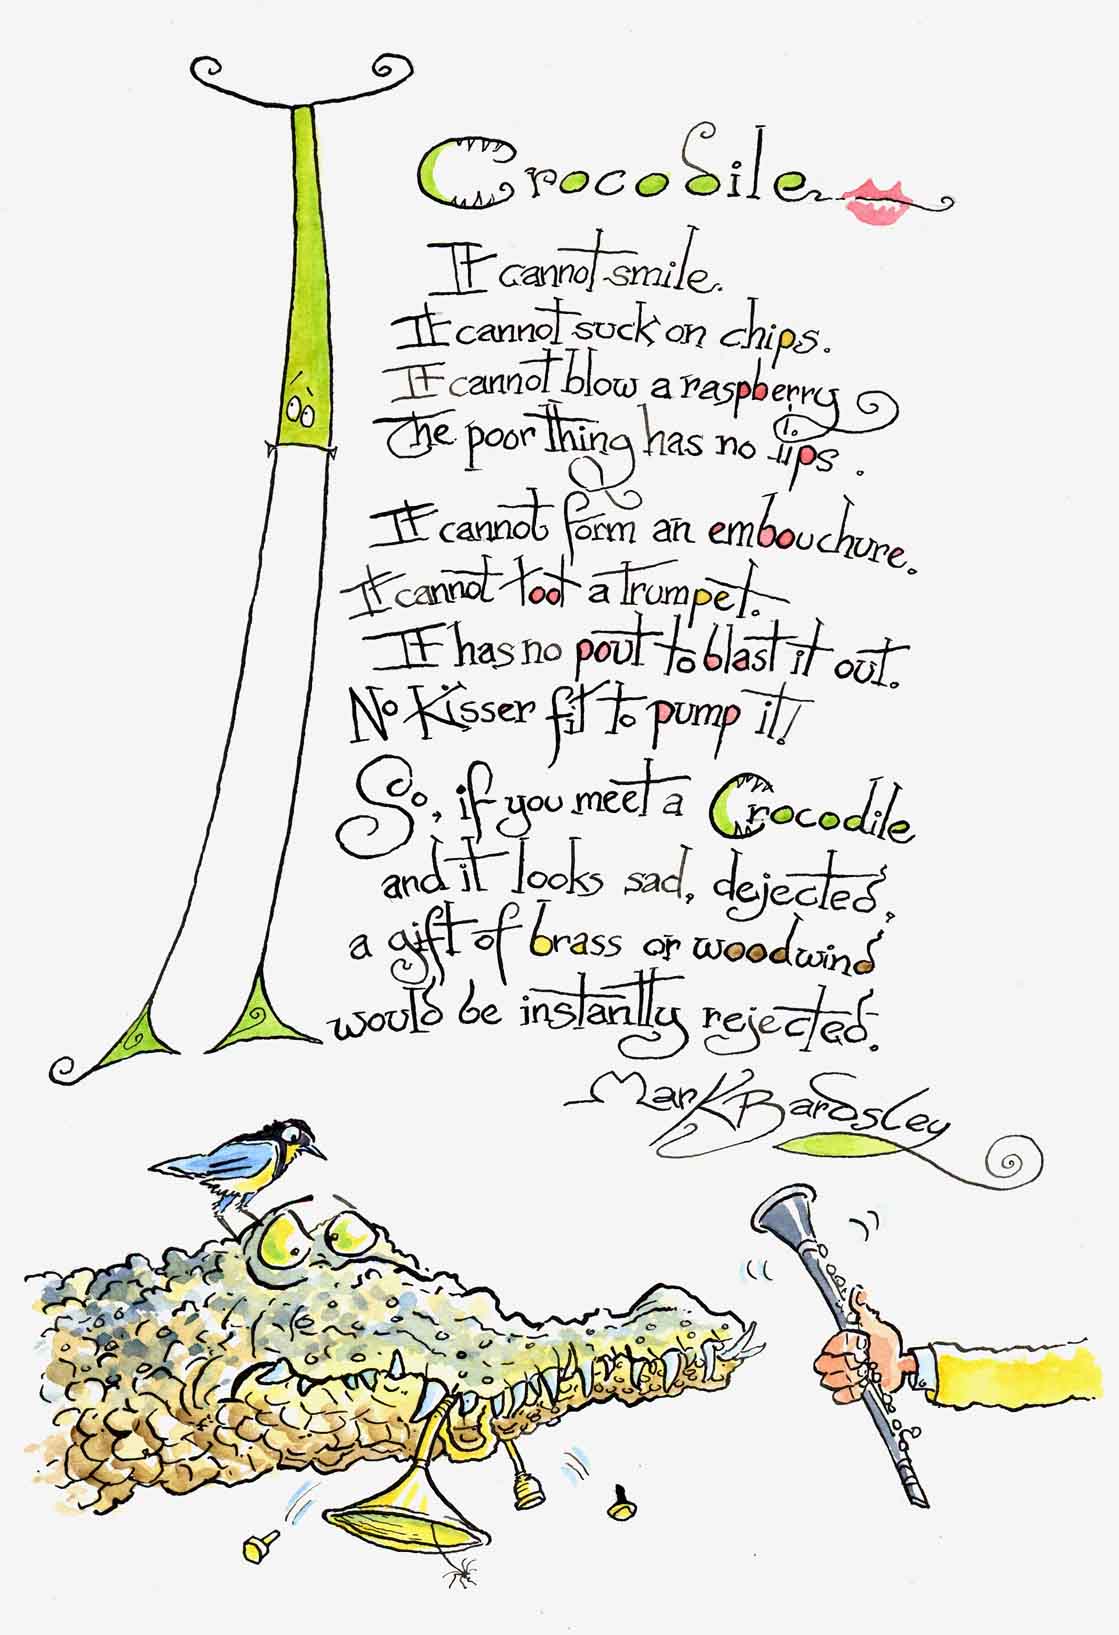 A Crocodile
It cannot smile.
It cannot suck on chips.
It cannot blow a raspberry
The poor thing has no lips.
It cannot form an embouchure.
It cannot toot a trumpet.
It has no pout to blast it out.
No Kisser fit to pump it!
So, if you meet a Crocodile
and it looks sad, dejected,
a gift of brass or woodwind
would be instantly rejected.
Mark Bardsley